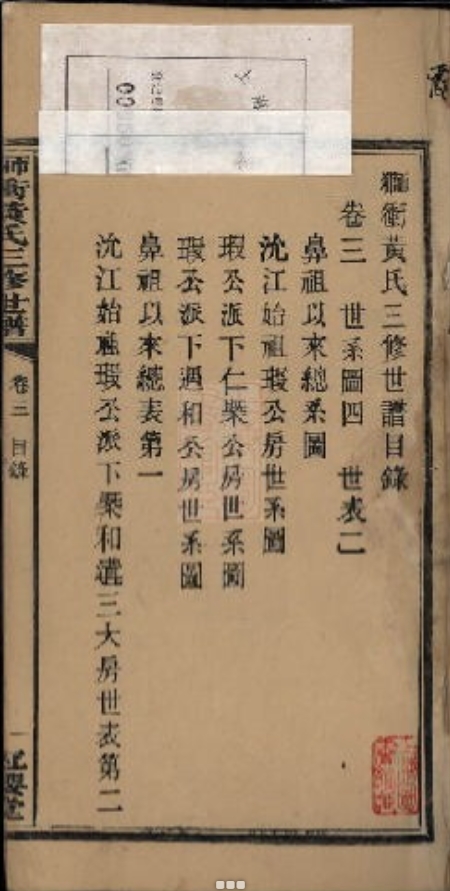 獅衝黃氏三修世譜目錄
卷三 世系圖四 世表二
鼻祖以來總系圖
沇江始祖瑕公房世系圖
瑕公派下仁榘公房世系圖
瑕公派下遇和公房世系圖
鼻祖以來總表第一
沇江始祖瑕公派下榘和三大房世表第二
師衝黃氏三修世譜
卷三 目錄
一